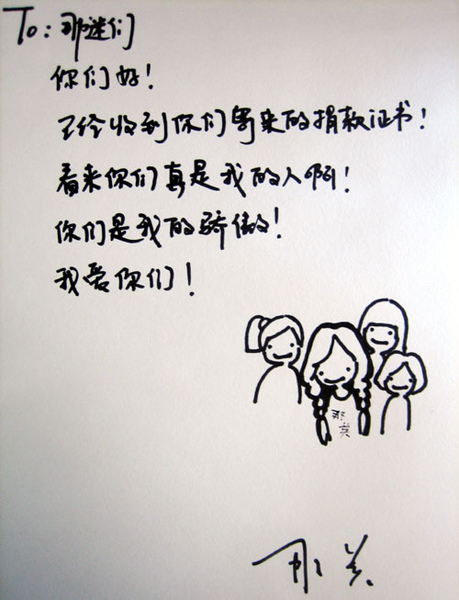 To: 那迷们
你们好!
已经收到你们寄来的捐款证书!
看来你们真是我的人啊!
你们是我的骄傲!
我爱你们!
那英
那英